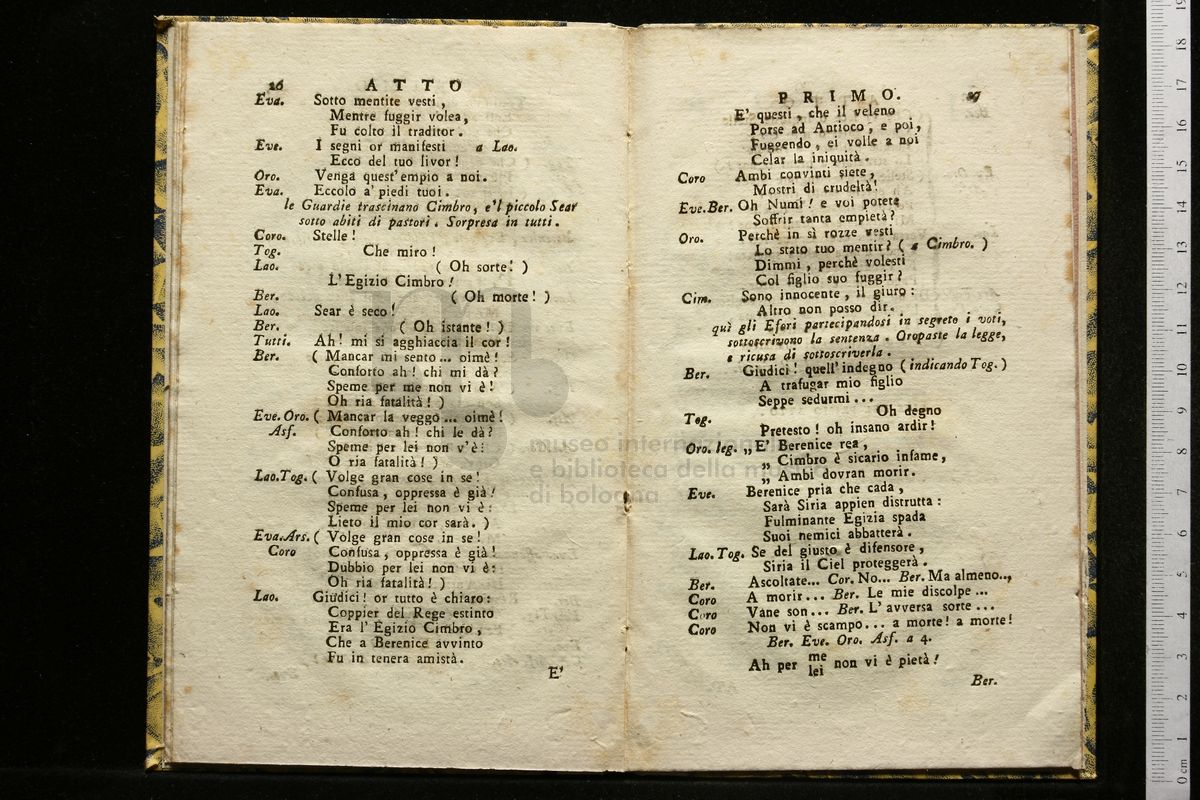 26 ATTO
Eva. Sotto mentite vesti,
Mentre fuggir volea,
Fu colto il traditor.
Eve. I segni or manifesti a Lao.
Ecco del tuo livor!
Oro. Venga quest'empio a noi.
Eva. Eccolo a' piedi tuoi.
le Guardie trascinano Cimbro, e'l piccolo Sear
sotto abiti di pastori. Sorpresa in tutti.
Coro. Stelle!
Tog. Che miro!
Lao. (Oh sorte!)
L'Egizio Cimbro!
Ber. (Oh morte!)
Lao. Sear è seco!
Ber. (Oh istante!)
Tutti. Ah! mi si agghiaccia il cor!
Ber. (Mancar mi sento... oimè!
Conforto ah! chi mi dà?
Speme per me non vi è!
Oh ria fatalità!)
Eve. Oro. (Mancar la veggo... oimè!
Asf. Conforto ah! chi le dà?
Speme per lei non v'è:
O ria fatalità!)
Lao. Tog. (Volge gran cose in se!
Confusa, oppressa è già!
Speme per lei non vi è:
Lieto il mio cor sarà.)
Eva. Ars. (Volge gran cose in se!
Coro Confusa, oppressa è già!
Dubbio per lei non vi è:
Oh ria fatalità!)
Lao. Giudici! or tutto è chiaro:
Coppier del Rege estinto
Era l'Egizio Cimbro,
Che a Berenice avvinto
Fu in tenera amistà.
E'
PRIMO. 27
E' questi, che il veleno
Porse ad Antioco, e poi,
Fuggendo, ei volle a noi
Celar la iniquità.
Coro Ambi convinti siete,
Mostri di crudeltà!
Eve. Ber. Oh Numi! e voi potete
Soffrir tanta empietà?
Oro. Perchè in sì rozze vesti
Lo stato tuo mentir? (a Cimbro.)
Dimmi, perchè volesti
Col figlio suo fuggir?
Cim. Sono innocente, il giuro:
Altro non posso dir.
quì gli Efori partecipandosi in segreto i voti,
sottoscrivono la sentenza. Oropaste la legge,
e ricusa di sottoscriverla.
Ber. Giudici! quell'indegno (indicando Tog.)
A trafugar mio figlio
Seppe sedurmi...
Tog. Oh degno
Pretesto! oh insano ardir!
Oro. leg. „E' Berenice rea,
„ Cimbro è sicario infame,
„ Ambi dovran morir.
Eve. Berenice pria che cada,
Sarà Siria appien distrutta:
Fulminante Egizia spada
Suoi nemici abbatterà.
Lao. Tog. Se del giusto è difensore,
Siria il Ciel proteggerà.
Ber. Ascoltate... Cor. No... Ber. Ma almeno..,
Coro A morir... Ber. Le mie discolpe...
Coro Vane son... Ber. L'avversa sorte...
Coro Non vi è scampo... a morte! a morte!
Ber. Eve. Oro. Asf. a 4.
Ah per me non vi è pietà!
lei
Ber.
museo internazionale
e biblioteca della musica
di bologna